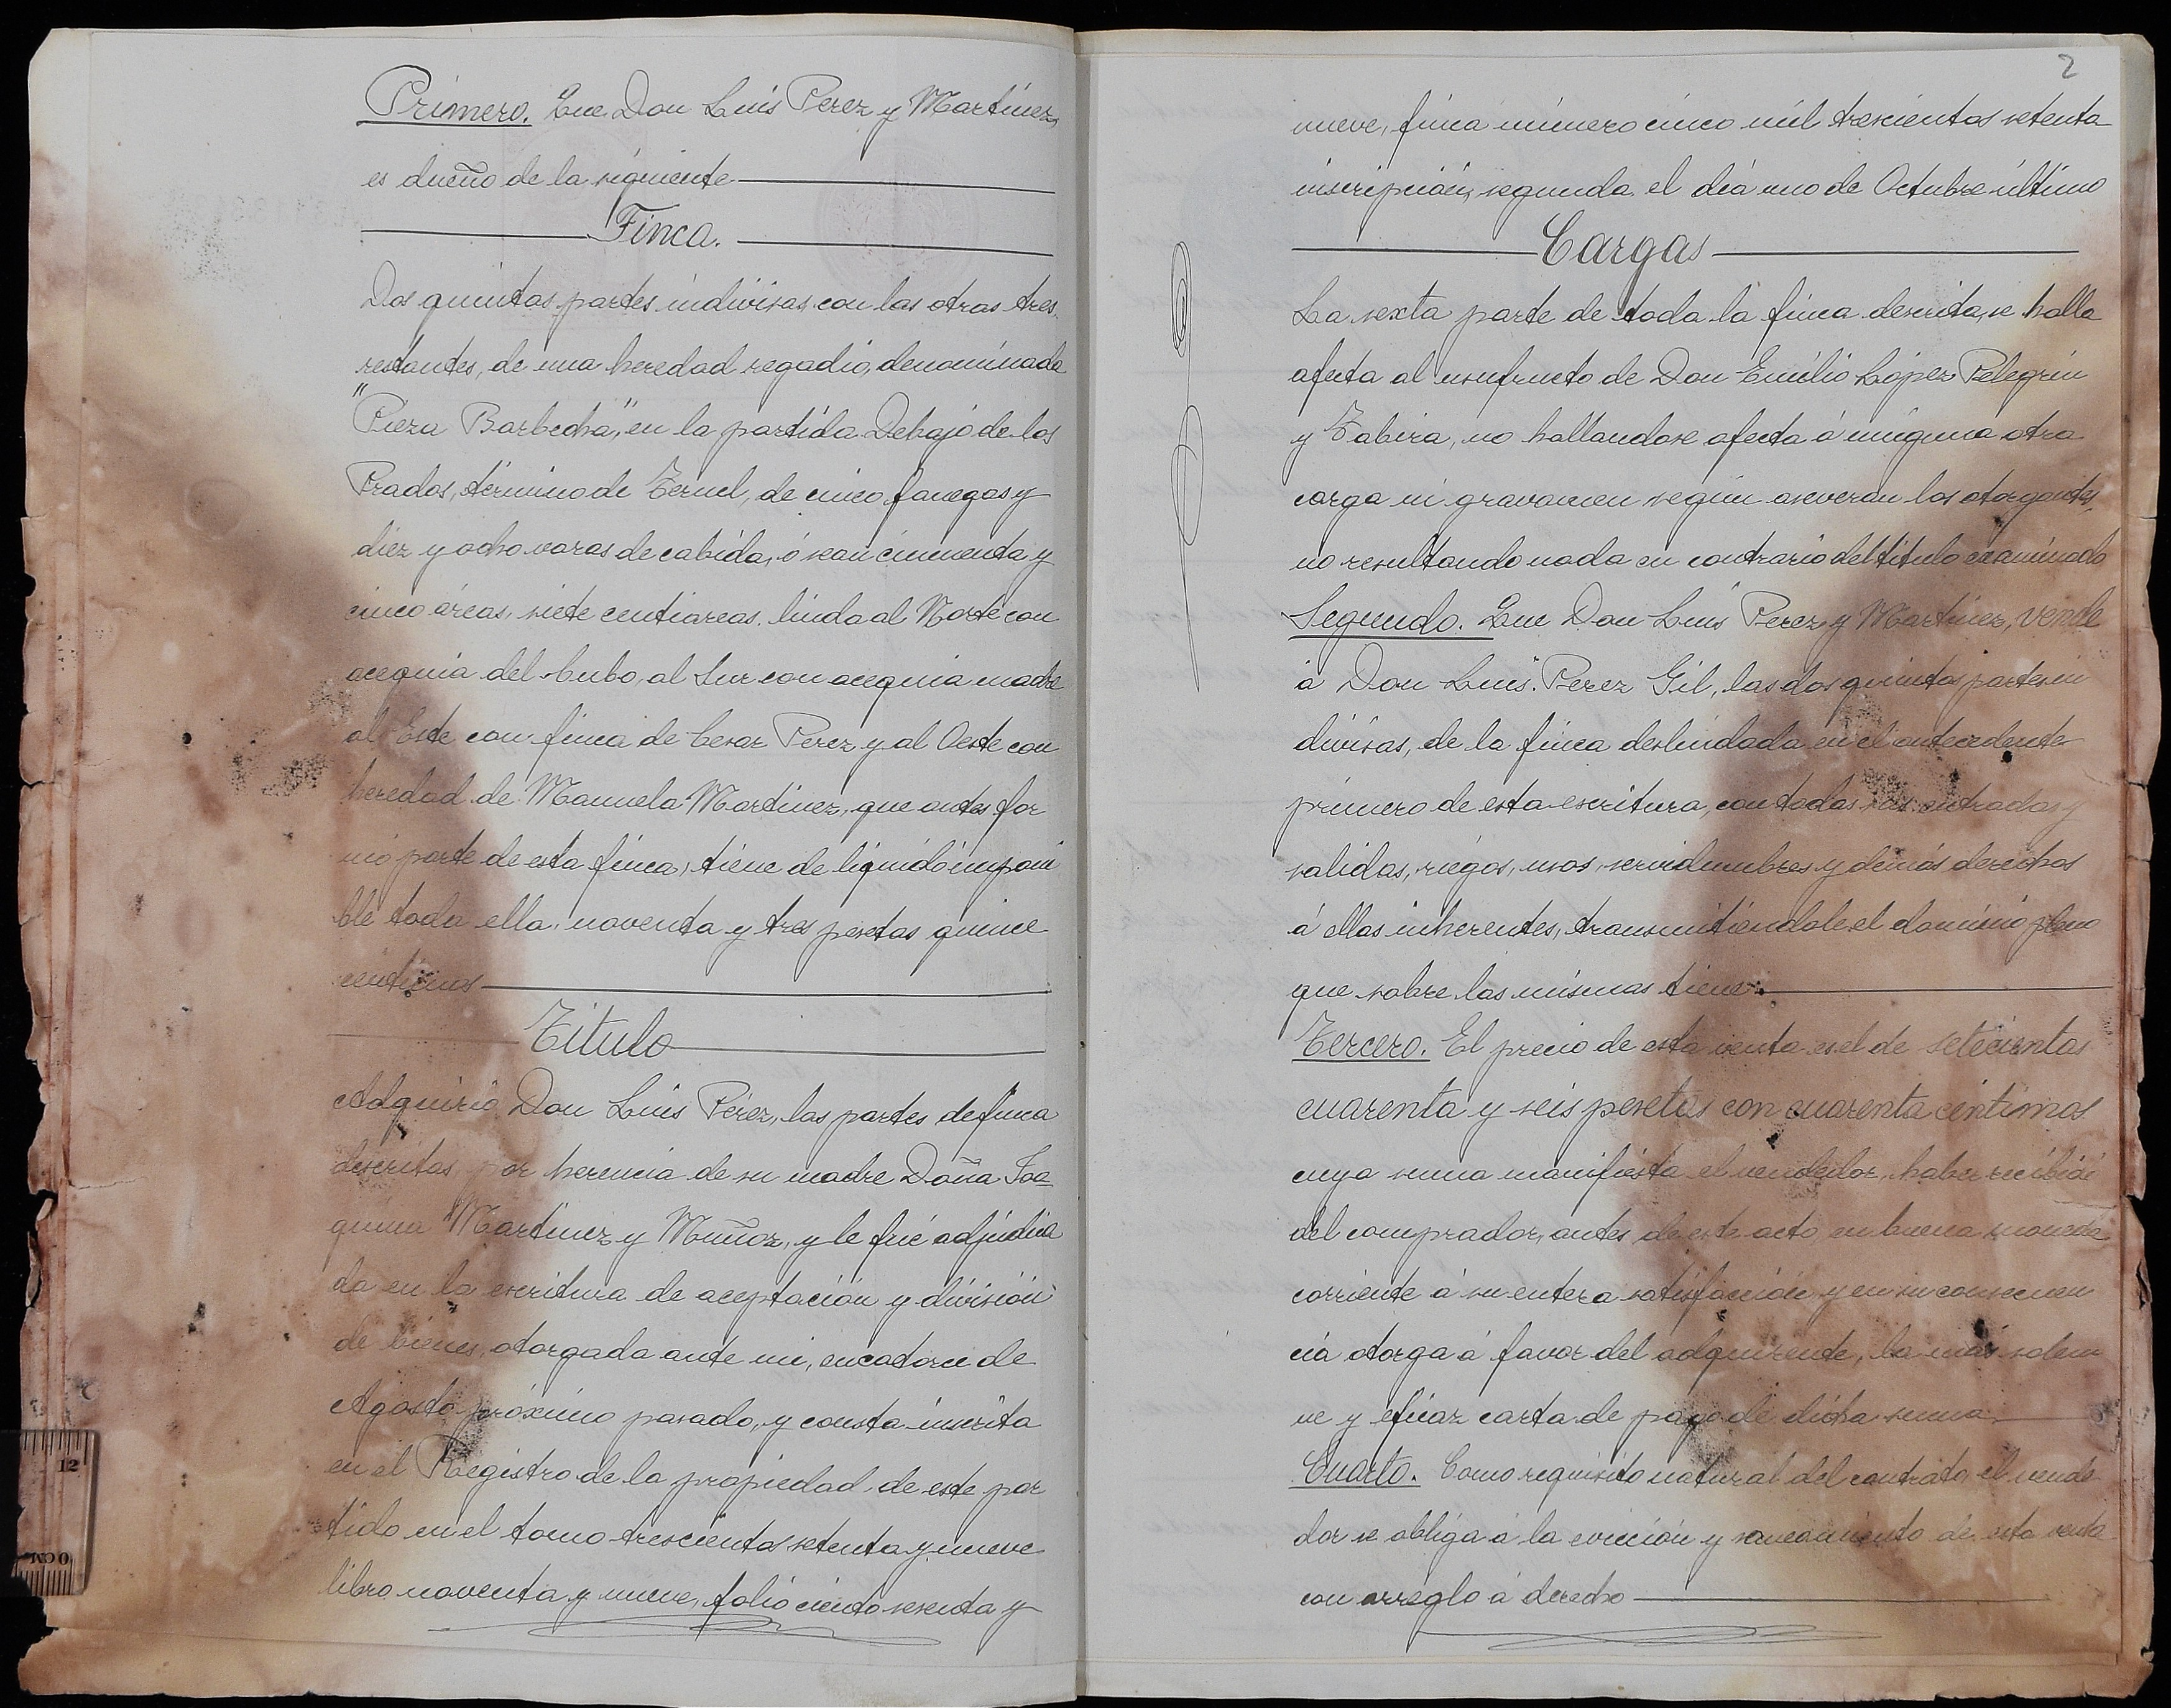 Primero. Que Don Luis Perez y Martinez,
es dueño de la siguiente
Finca.
Dos quintas partes indivisas con las otras tres
restantes, de una heredad regadio, denominada
"Pieza Barbecha", en la partida Debajo de los
Prados, término de Teruel, de cinco fanegas y
diez y ocho varas de cabida, ó sean cincuenta y
cinco áreas, siete centiareas. linda al Norte con
acequia del Cubo, al Sur con acequia madre
al Este con finca de Cesar Perez y al Oeste con
heredad de Manuela Martinez, que antes for
mó parte de esta finca, tiene de liquido imponi
ble toda ella, noventa y tres pesetas quince
centimos
Titulo
Adquirió Don Luis Pérez, las partes de finca
descritas, por herencia de su madre Doña Joa
quina Martinez y Muñoz, y le fué adjudica
da en la escritura de aceptación y división
de bienes, otorgada ante mi, en catorce de
Agosto próximo pasado, y consta inscrita
en el Registro de la propiedad de este par
tido en el tomo trescientos setenta y nueve
libro noventa y nueve, folio ciento sesenta y
2
nueve, finca número cinco mil trescientos setenta
inscripción, segunda el dia uno de Octubre último
Cargas
La sexta parte de toda la finca descrita, se halla
afecta al usufructo de Don Emilio López Pelegrin
y Tabira, no hallandose afecta á ninguna otra
carga ni gravamen según aseveran los otorgantes,
no resultando nada en contrario del titulo examinado
Segundo. Que Don Luis Perez y Martinez, vende
á Don Luis Perez Gil, las dos quintas partes in
divisas, de la finca deslindada en el antecedente
primero de esta escritura, con todas sus entradas y
salidas, riegos, usos, servidumbres y demás derechos
á ellas inherentes, transmitiéndole el dominio pleno
que sobre las mismas tiene
Tercero. El precio de esta venta es el de setecientas
cuarenta y seis pesetas con cuarenta céntimos
cuya suma manifiesta el vendedor, haber recibido
del comprador, antes de este acto, en buena moneda
corriente á su entera satisfacción y en su consecuen
cia otorga á favor del adquirente, la más solem
ne y eficaz carta de pago de dicha suma.
Cuarto. Como requisito natural del contrato, el vende
dor se obliga á la evicción y saneamiento de esta venta
con arreglo á derecho
12
0 CM